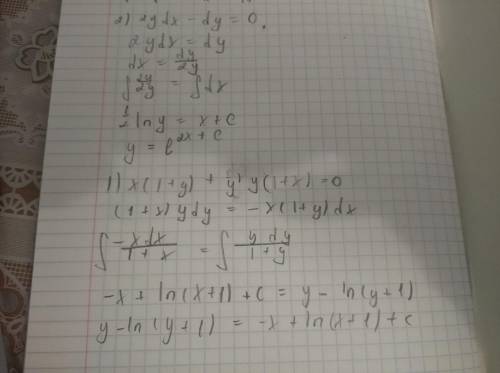 2) 2y dx - dy = 0.
2y dx = dy
dx = dy/2y
∫ dy/2y = ∫ dx
1/2 ln y = x + C
y = e^(2x + C)
1) x(1+y) + y' y(1+x) = 0
(1+x) y dy = -x(1+y) dx
∫ -x dx/1+x = ∫ y dy/1+y
-x + ln(x+1) + C = y - ln(y+1)
y - ln(y+1) = -x + ln(x+1) + C